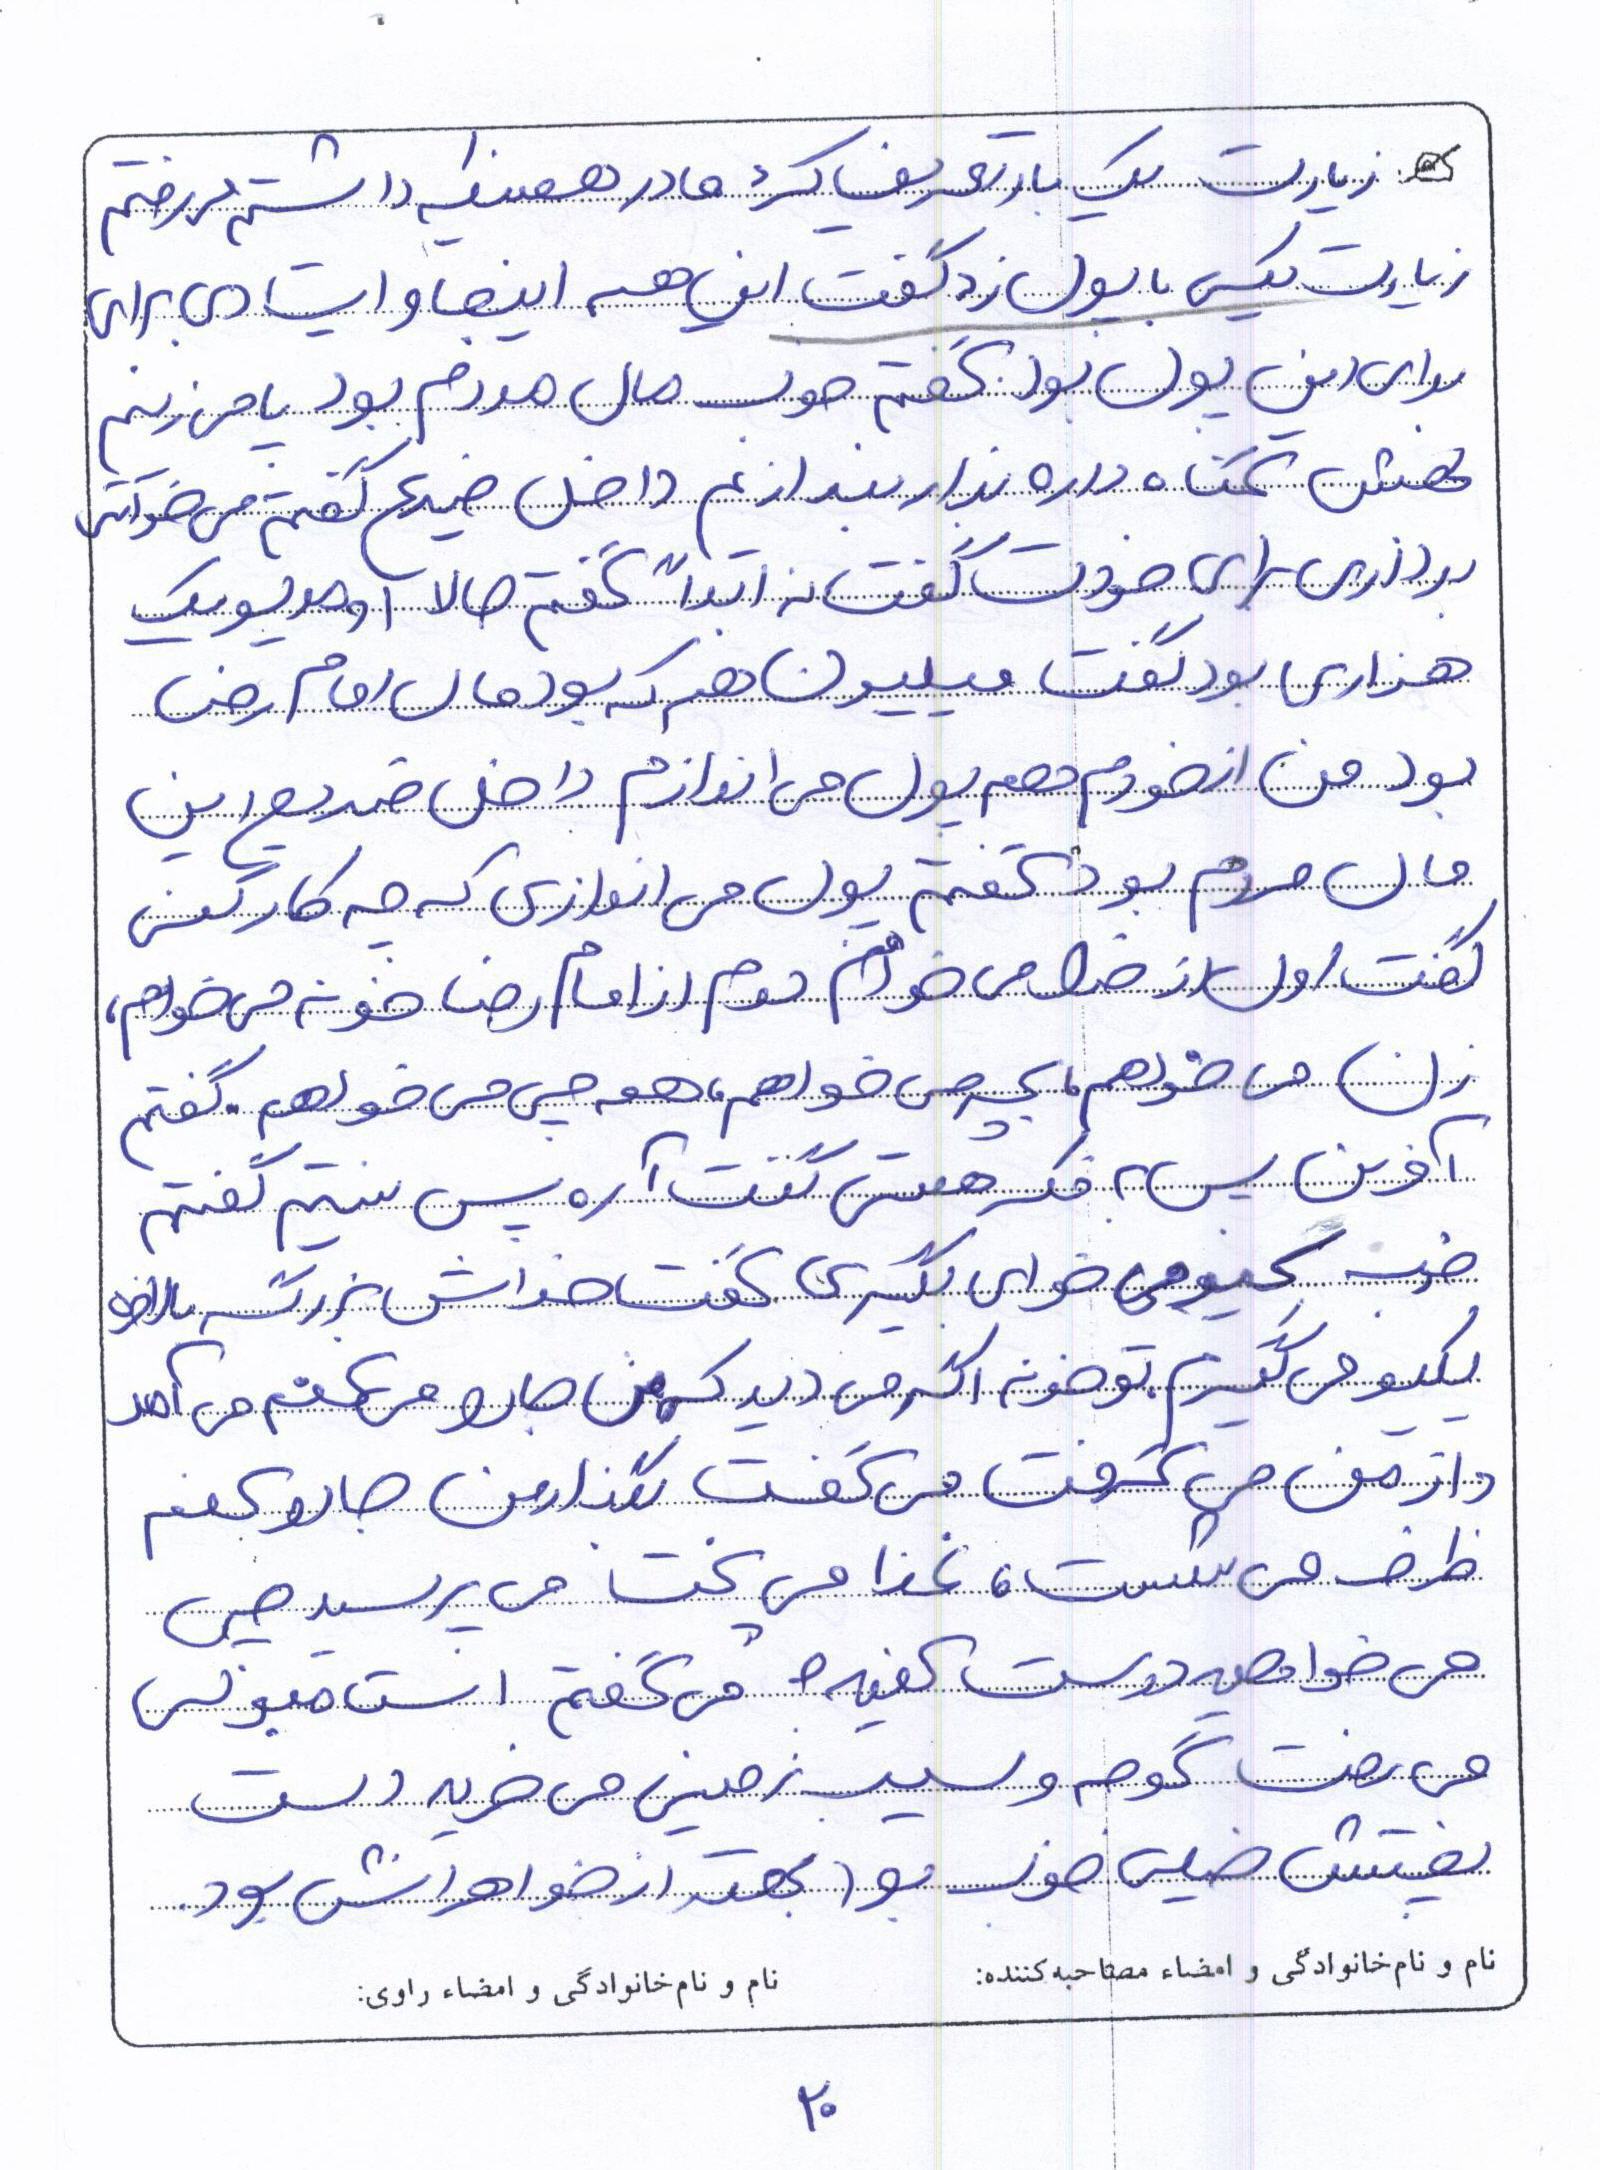 زیارت یک بار تعریف کرد مادر همینطور داشتم می رفتم
زیارت یکی با پول زد گفت این همه اینجا وایستادی برای
برای این پول بود. گفتم خوب مال مردم بود پا می زنم
بهش گناه داره بذار بندازم داخل ضریح گفتم می خواستی
برداری برای خودت گفت نه ابداً گفتم حالا
هزاری بود گفت میلیون هم که بود مال امام رضا
بود من از خودم هم پول می اندازم داخل ضریح این
مال مردم بود گفتم پول می اندازی که چه کار کنی
گفت اول از خدا می خوام دوم از امام رضا خونه می خوام،
زن می خواهم، بچه می خواهم، همه چی می خواهم. گفتم
آفرین پس به فکر هستی گفت آره پس نیستم گفتم
خوب می خوای بگیری گفت خداش بزرگه بالاخره
یکیو می گیرم. تو خونه اگر می دید که من جارو می کنم می آمد
از من می گرفت می گفت بگذار من جارو کنم
ظرف می شست، غذا می پخت می پرسید چی
می خواهید درست کنید می گفتم استامبولی
می رفت گوجه و سیب زمینی می خرید دست
پختش خیلی خوب بود بهتر از خواهرانش بود.
نام و نام خانوادگی و امضاء مصاحبه کننده: نام و نام خانوادگی و امضاء راوی:
۲۰